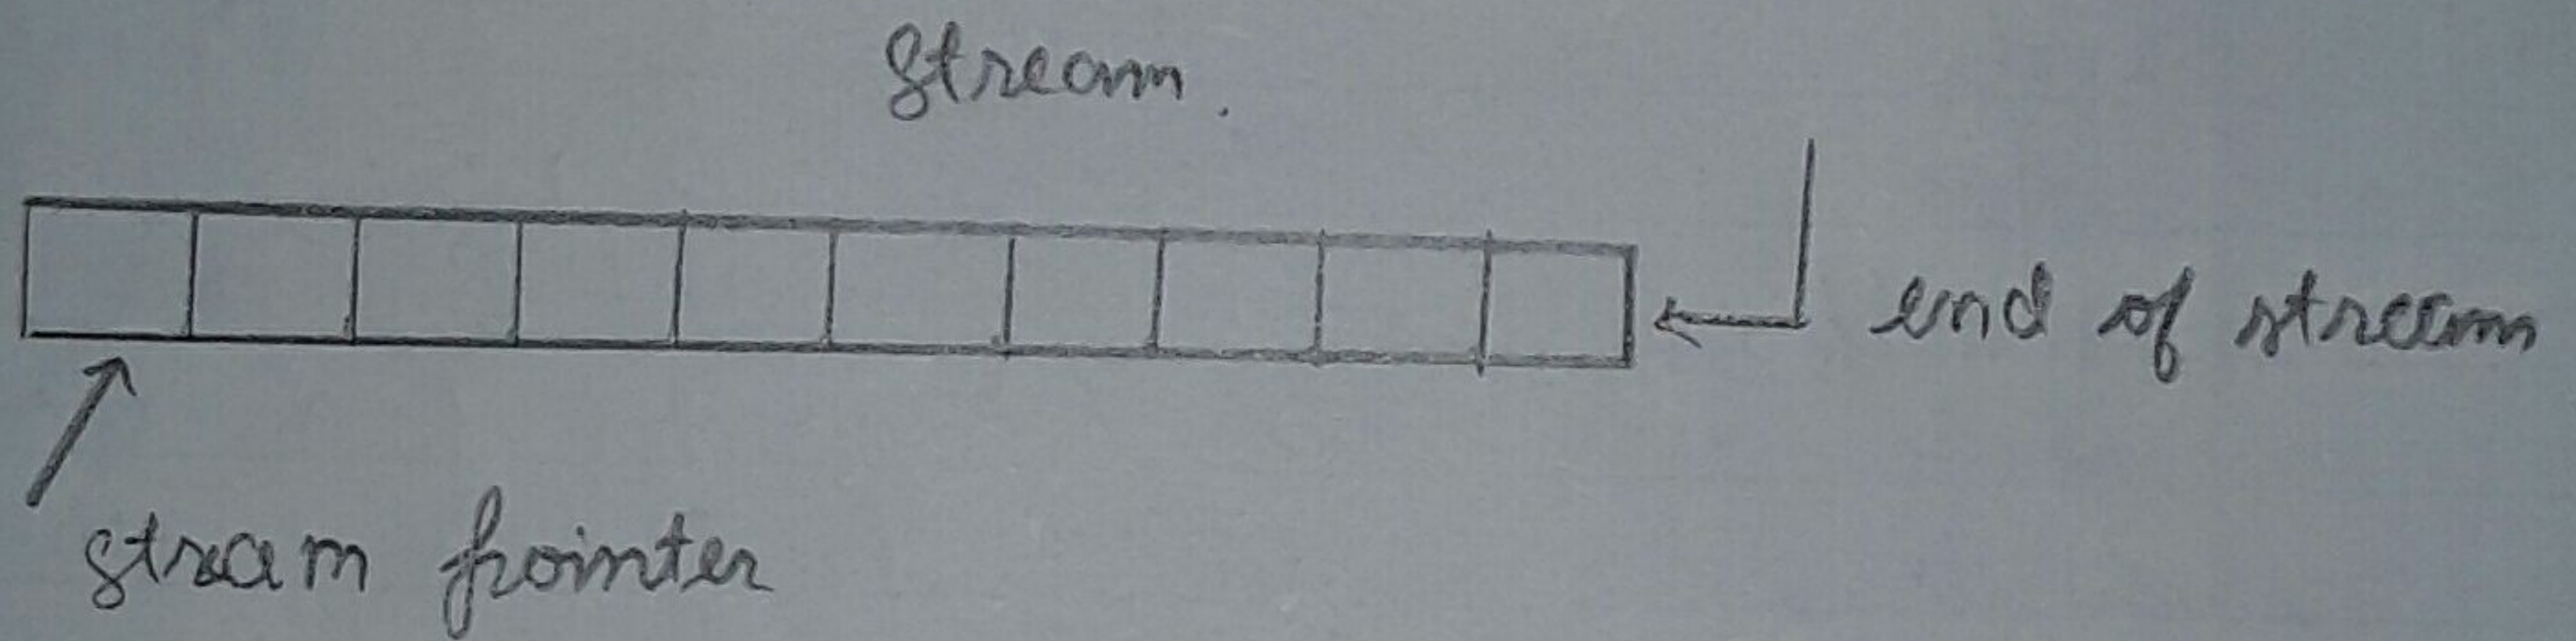 Stream.
end of stream
stream pointer